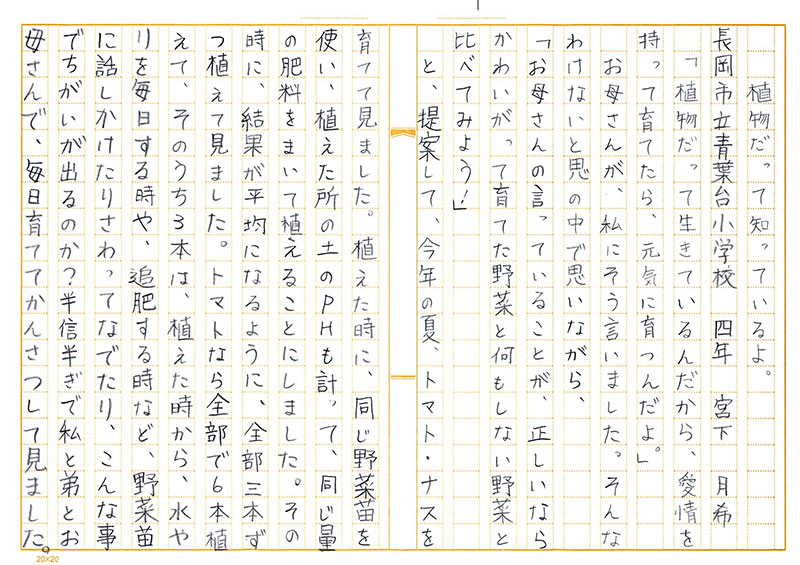 植物だって知っているよ。
長岡市立青葉台小学校 四年 宮下 月希
「植物だって生きているんだから、愛情を
持って育てたら、元気に育つんだよ。」
お母さんが、私にそう言いました。そんな
わけないと思の中で思いながら、
「お母さんの言っていることが、正しいなら
かわいがって育てた野菜と何もしない野菜と
比べてみよう!」
と、提案して、今年の夏、トマト・ナスを
育てて見ました。植えた時に、同じ野菜苗を
使い、植えた所の土のPHも計って、同じ量
の肥料をまいて植えることにしました。その
時に、結果が平均になるように、全部三本ず
つ植えて見ました。トマトなら全部で6本植
えて、そのうち3本は、植えた時から、水や
りを毎日する時や、追肥する時など、野菜苗
に話しかけたりさわってなでたり、こんな事
でちがいが出るのか?半信半ぎで私と弟とお
母さんで、毎日育ててかんさつして見ました。
20×20